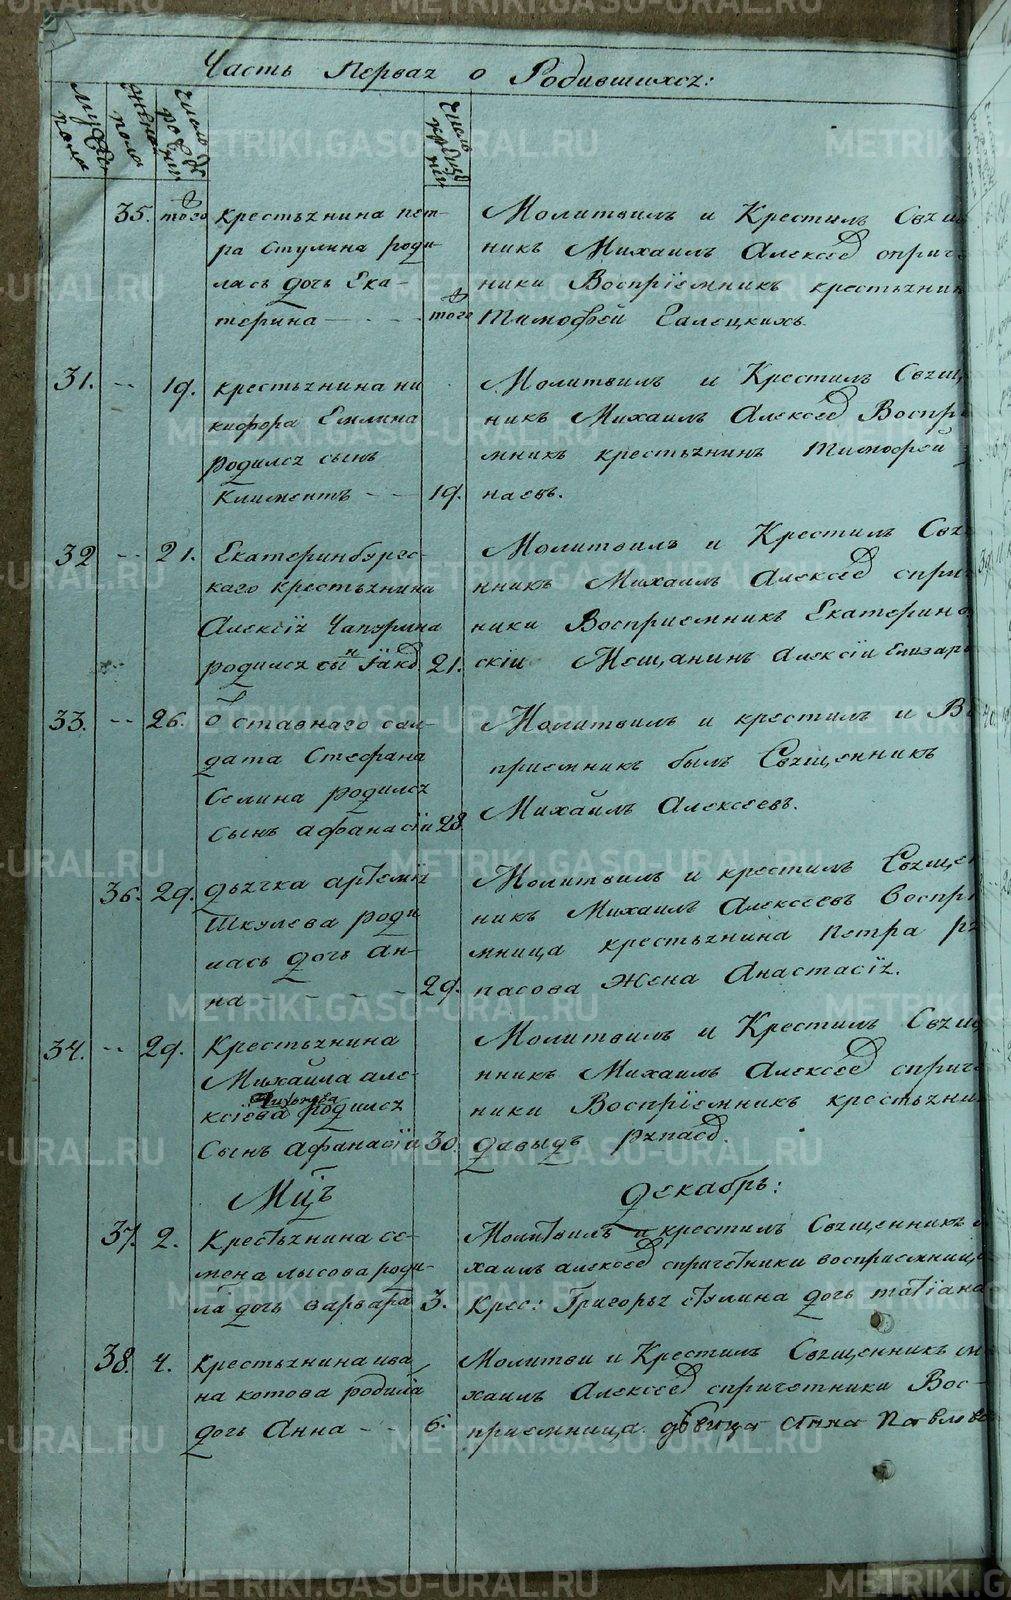 Часть Первая о Родившихся:
мужеска пола
женска пола
число рождения
число крещения
35. того крестьянина пет-
ра Стулина роди-
лась дочь Ека-
терина - - - того
Молитвилъ и Крестилъ Свящ
никъ Михаилъ Алексеев
ники Воспріемникъ крестьянин
Тимофей Галецкихъ.
31. -- 19. крестьянина ни
кифора Емлина
родился сынъ
Климентъ -- 19.
Молитвилъ и Крестилъ Свящ
никъ Михаилъ Алексеев Воспрі
мникъ крестьянинъ Тимофей
наевъ.
32 -- 21. Екатеринбургс-
каго крестьянина
Алексія Чапурина
родился сын 21.
Молитвилъ и Крестилъ Свящ
нникъ Михаилъ Алексеев спричт
ники Восприемникъ Екатеринб
скій Мещанинъ Алексій Елизар
33. -- 26. Отставнаго сал-
дата Стефана
Селина родился
сынъ Афанасій 28
Молитвилъ и крестилъ и Во
приемникъ былъ Священникъ
Михаилъ Алексеевъ.
36. 29. дьячка артемія
Шкулева роди
лась дочь Ан-
на - - - 29.
Молитвилъ и крестилъ Священ
никъ Михаилъ Алексеевъ Воспрі
мница крестьянина Петра Ря
пасова Жена Анастасія.
34. -- 29. Крестьянина
Михаила але-
ксіева родился
Сынъ Афанасій 30.
Молитвилъ и Крестилъ Свящ
нникъ Михаилъ Алексеев спричт
ники Воспріемникъ крестьянин
давыдъ Ряпасов.
Мцъ Декабрь:
37. 2. Крестьянина се-
мена лысова роди-
ла дочь варвара 3.
Молитвилъ и крестилъ Священникъ ми
хаилъ алексеев спричетники восприемница
Крес: Григорья стулина дочь татіана
38. 4. Крестьянина ива
на котова родила
дочь Анна -- 6.
Молитви и Крестилъ Священникъ ми
хаилъ Алексеев спричетники Вос-
приемница девица Анна Павлова